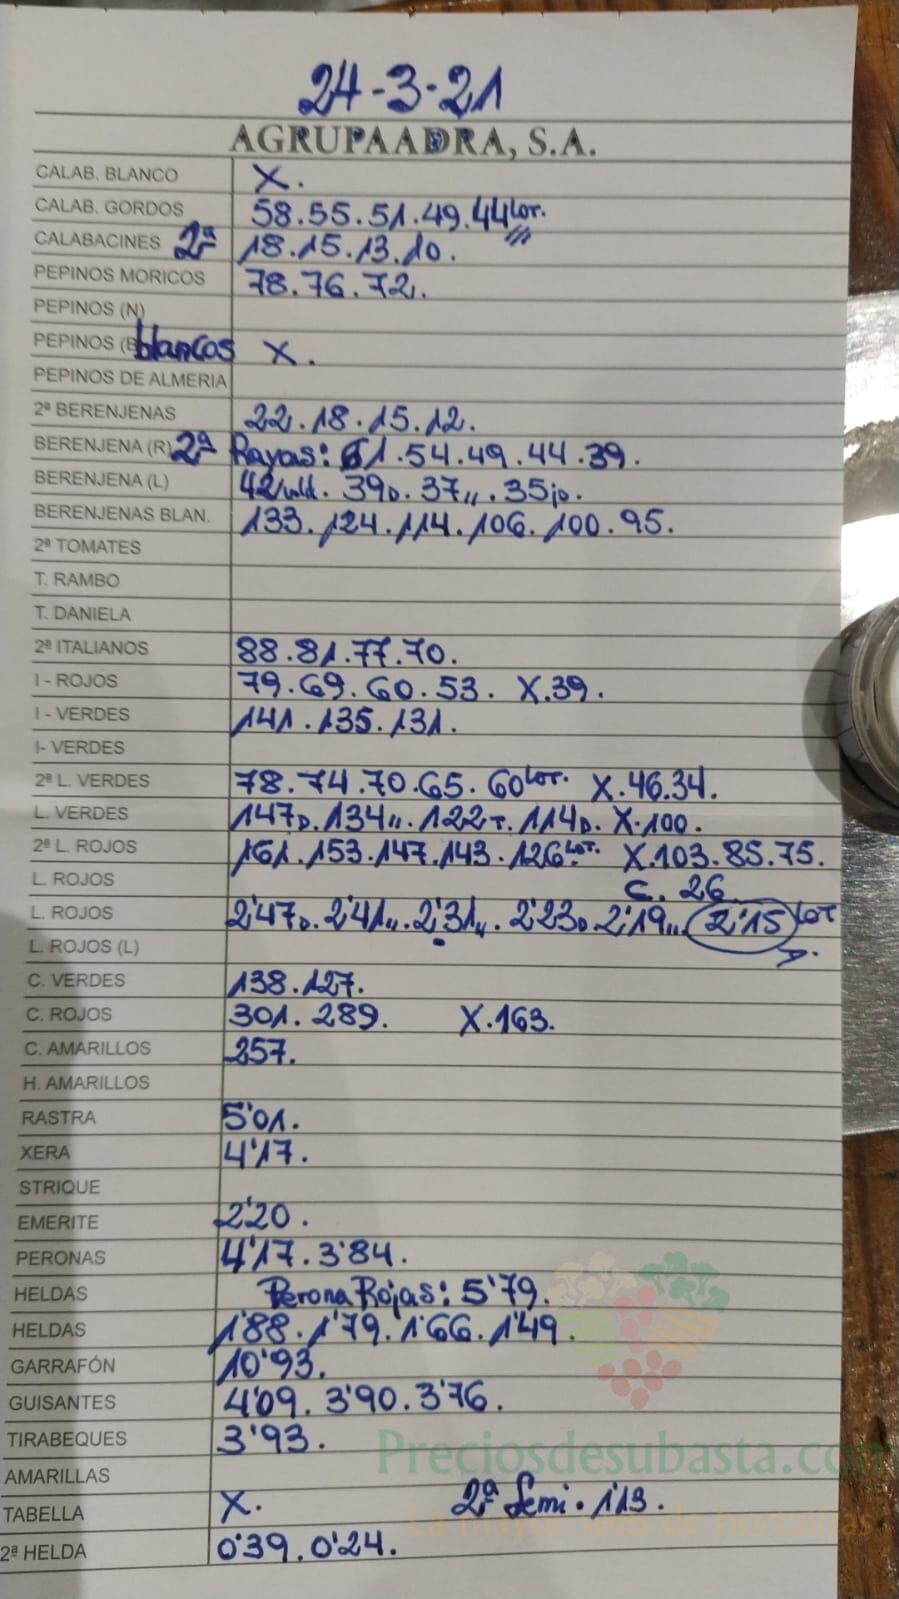 24-3-21
AGRUPAADRA, S.A.
CALAB. BLANCO X.
CALAB. GORDOS 58.55.51.49.44 Lot.
CALABACINES 2ª 18.15.13.10.
PEPINOS MORICOS 78.76.72.
PEPINOS (N)
PEPINOS (B blancos X.
PEPINOS DE ALMERIA
2ª BERENJENAS 22.18.15.12.
BERENJENA (R) 2ª Rayas: 61.54.49.44.39.
BERENJENA (L) 42 . 39D. 37,, . 35
BERENJENAS BLAN. 133.124.114.106.100.95.
2ª TOMATES
T. RAMBO
T. DANIELA
2ª ITALIANOS 88.81.77.70.
I - ROJOS 79.69.60.53. X.39.
I - VERDES 141.135.131.
I- VERDES
2ª L. VERDES 78.74.70.65.60 Lot. X.46.34.
L. VERDES 147D.134,,.122T.114D. X.100.
2ª L. ROJOS 161.153.147.143.126 Lot. X.103.85.75.
L. ROJOS C. 26
L. ROJOS 2'47D.2'41,,.2'31,,.2'23D.2'19,,.2'15 Lot
L. ROJOS (L)
C. VERDES 138.127.
C. ROJOS 301.289. X.163.
C. AMARILLOS 257.
H. AMARILLOS
RASTRA 5'01.
XERA 4'17.
STRIQUE
EMERITE 2'20.
PERONAS 4'17.3'84.
HELDAS Perona Rojas: 5'79.
HELDAS 1'88.1'79.1'66.1'49.
GARRAFÓN 10'93.
GUISANTES 4'09.3'90.3'76.
TIRABEQUES 3'93.
Preciosdesubasta.com
AMARILLAS
TABELLA X. 2ª Semi. 1'13.
La mayor web de hortalizas
2ª HELDA 0'39.0'24.